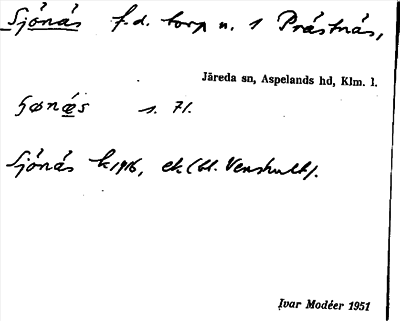 Sjönäs f.d. torp u. 1 Prästnäs,
Järeda sn, Aspelands hd, Klm. l.
s. 71.
Sjönäs k 1916, ek (bl. Venshult).
Ivar Modéer 1951